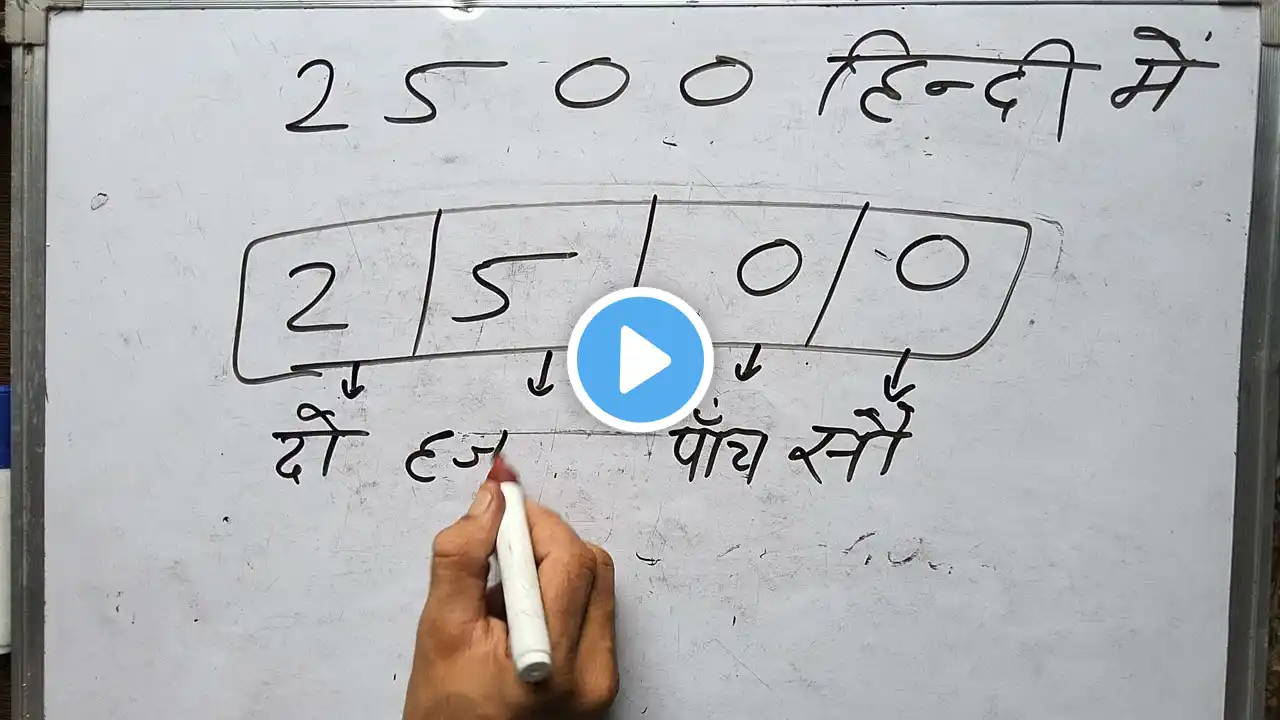 2500 हिन्दी में
2 5 0 0
दो हज पाँच सौ